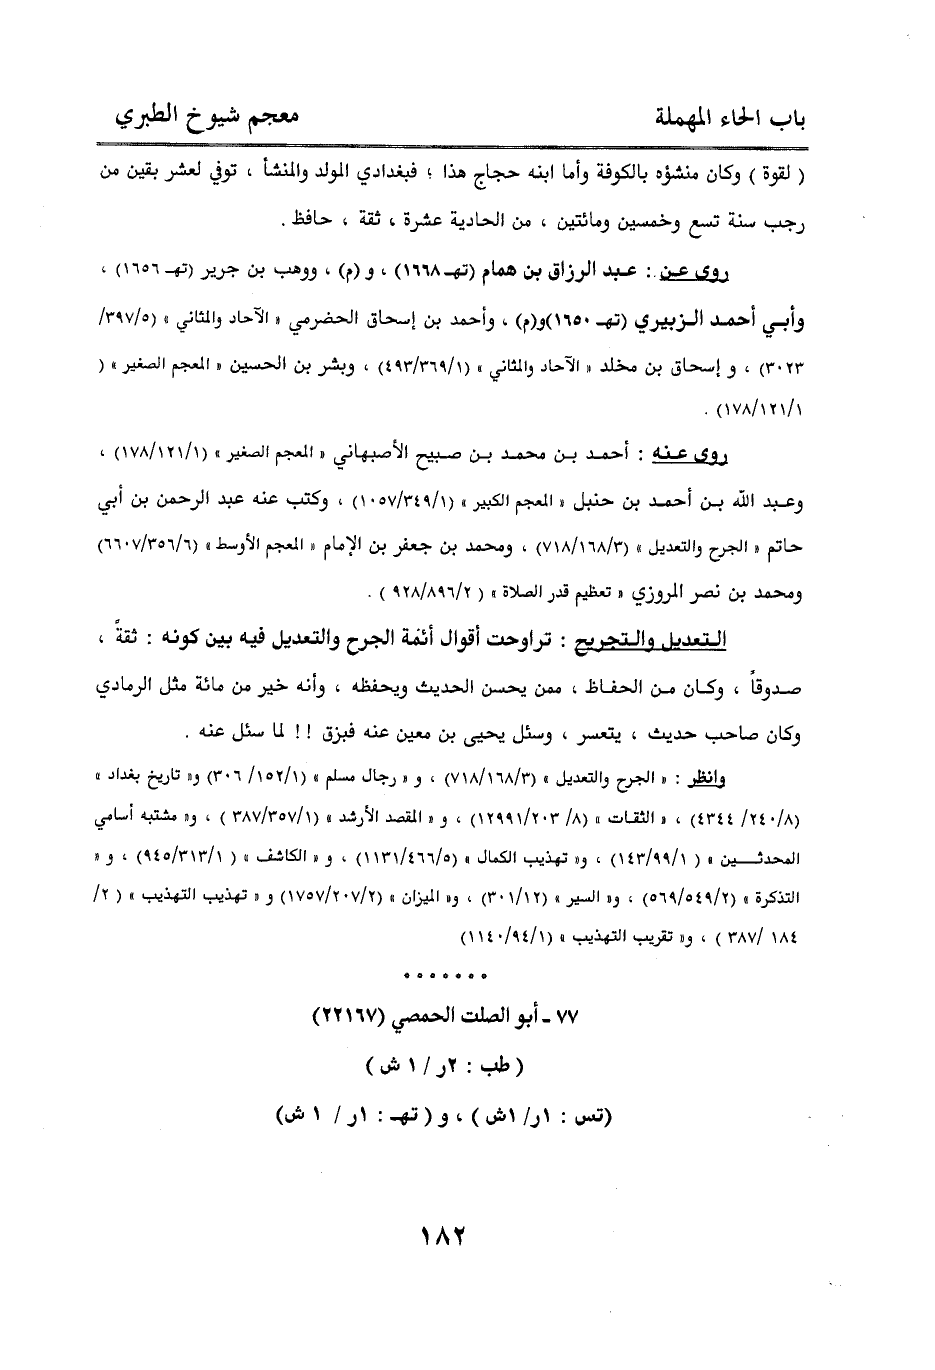 باب الحاء المهملة
معجم شيوخ الطبري
( لقوة ) وكان منشؤه بالكوفة وأما ابنه حجاج هذا ؛ فبغدادي المولد والمنشأ ، توفي لعشر بقين من
رجب سنة تسع وخمسين ومائتين ، من الحادية عشرة ، ثقة ، حافظ .
روى عن : عبد الرزاق بن همام (تهـ ١٦٦٨) ، و (م) ، ووهب بن جرير (تهـ ١٦٥٦) ،
وأبي أحمد الزبيري (تهـ ١٦٥٠)و(م) ، وأحمد بن إسحاق الحضرمي « الآحاد والمثاني » (٣٩٧/٥/
٣٠٢٣) ، و إسحاق بن مخلد « الآحاد والمثاني » (٤٩٣/٣٦٩/١) ، وبشر بن الحسين « المعجم الصغير » (
١٧٨/١٢١/١) .
روى عنه : أحمد بن محمد بن صبيح الأصبهاني « المعجم الصغير » (١٧٨/١٢١/١) ،
وعبد الله بن أحمد بن حنبل « المعجم الكبير » (١٠٥٧/٣٤٩/١) ، وكتب عنه عبد الرحمن بن أبي
حاتم « الجرح والتعديل » (٧١٨/١٦٨/٣) ، ومحمد بن جعفر بن الإمام « المعجم الأوسط » (٦٦٠٧/٣٥٦/٦)
ومحمد بن نصر المروزي « تعظيم قدر الصلاة » ( ٩٢٨/٨٩٦/٢ ) .
التعديل والتجريح : تراوحت أقوال أئمة الجرح والتعديل فيه بين كونه : ثقةً ،
صدوقاً ، وكان من الحفاظ ، ممن يحسن الحديث ويحفظه ، وأنه خير من مائة مثل الرمادي
وكان صاحب حديث ، يتعسر ، وسئل يحيى بن معين عنه فبزق !! لما سئل عنه .
وانظر : « الجرح والتعديل » (٧١٨/١٦٨/٣) ، و « رجال مسلم » (٣٠٦ /١٥٢/١) و« تاريخ بغداد »
(٤٣٤٤ /٢٤٠/٨) ، « الثقات » (١٢٩٩١/٢٠٣ /٨) ، و « المقصد الأرشد » (٣٨٧/٣٥٧/١ ) ، و« مشتبه أسامي
المحدثين » ( ١٤٣/٩٩/١) ، و« تهذيب الكمال » (١١٣١/٤٦٦/٥) ، و « الكاشف » ( ٩٤٥/٣١٣/١) ، و «
التذكرة » (٥٦٩/٥٤٩/٢) ، و« السير » (٣٠١/١٢) ، و« الميزان » (١٧٥٧/٢٠٧/٢) و « تهذيب التهذيب » ( ٢/
١٨٤ /٣٨٧ ) ، و« تقريب التهذيب » (١١٤٠/٩٤/١)
*******
٧٧ ـ أبو الصلت الحمصي (٢٢١٦٧)
( طب : ٢ر / ١ ش )
(تس : ١ر/ ١ش ) ، و ( تهـ : ١ر / ١ ش)
١٨٢